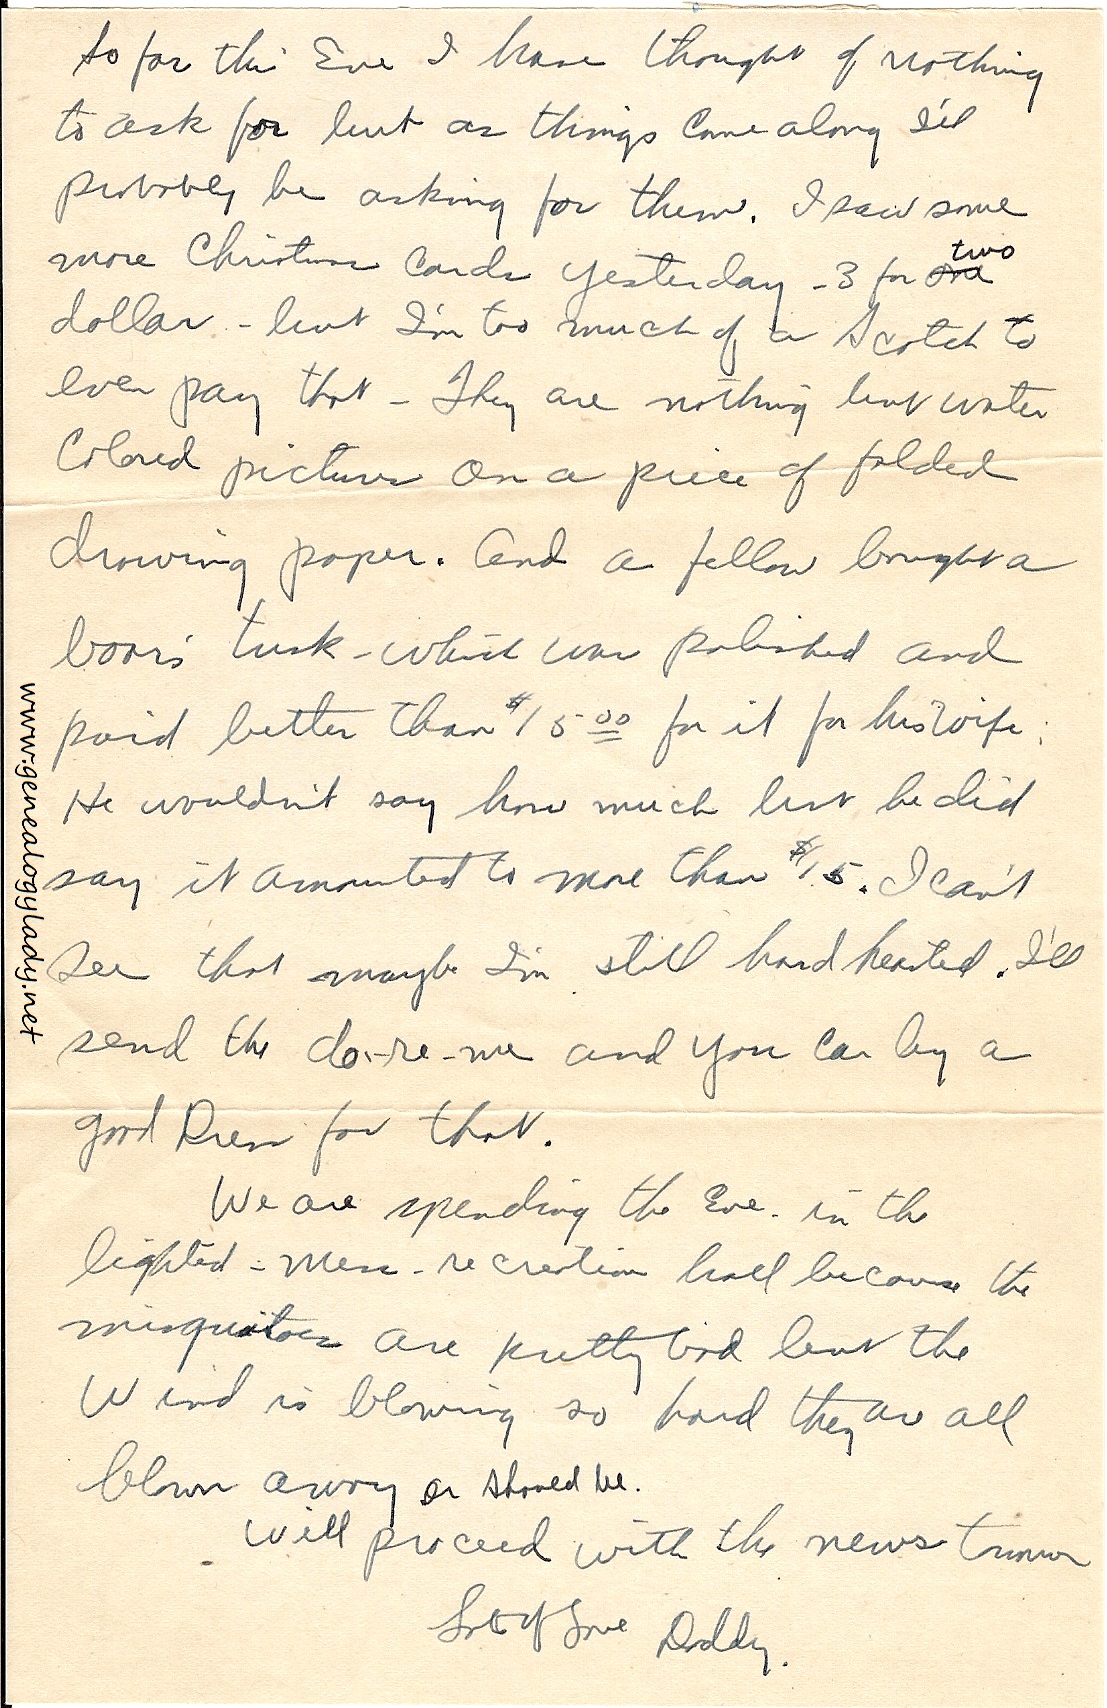 So far this Eve I have thought of nothing
to ask for but as things come along I'll
probably be asking for them. I saw some
more Christmas Cards yesterday - 3 for one two
dollar - but I'm too much of a Scotch to
ever pay that - They are nothing but water
Colored pictures on a piece of folded
drawing paper. And a fellow bought a
boar's tusk - which was polished and
paid better than $15 00 for it for his wife.
He wouldn't say how much but he did
say it amounted to more than $15. I can't
see that maybe I'm still hard hearted. I'll
send the do-re-me and you can buy a
good Dress for that.
We are spending the Eve. in the
lighted - mess - recreation hall because the
misquitoes are pretty bad but the
Wind is blowing so hard they are all
blown away or should be.
Will proceed with the news tomorrow
Lots of Love Daddy.
www.genealogylady.net